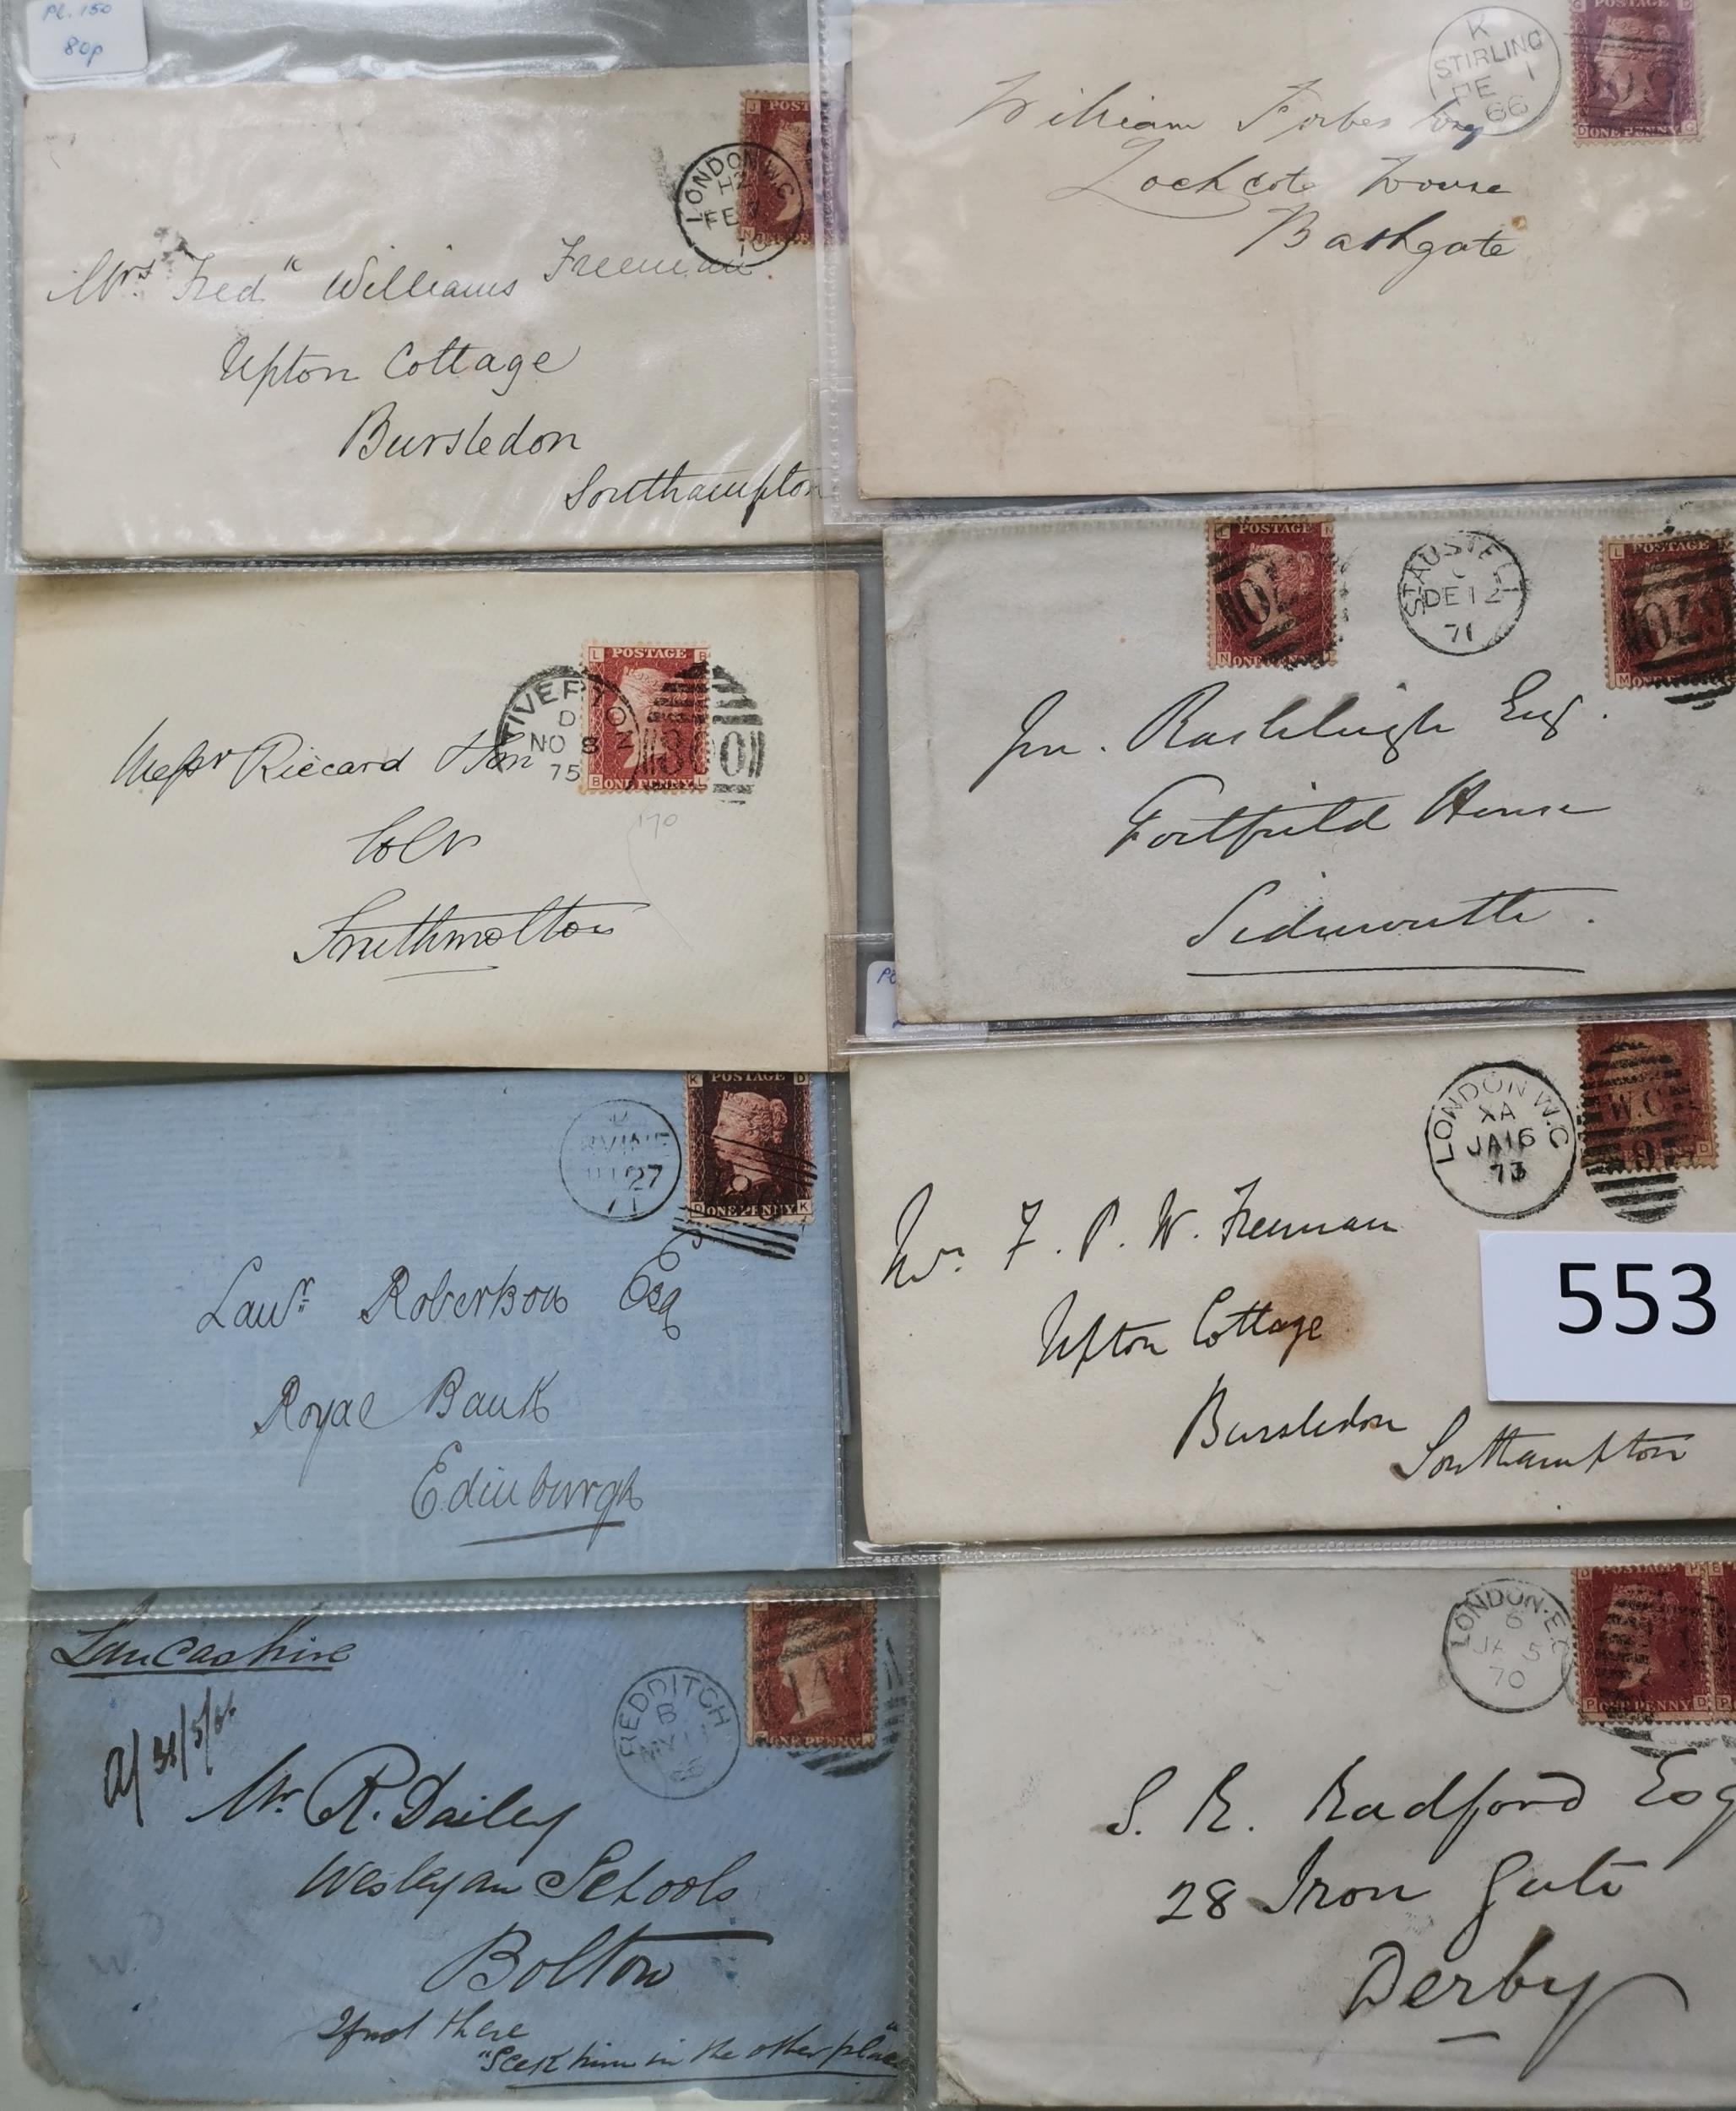 Pl. 150
80p
POST
J
LONDON W.C
H2
FE
Mrs Fred^k Williams Freeman
Upton Cottage
Bursledon
Southampton
POSTAGE
D ONE PENNY G
K
STIRLING
66
William Forbes Esq
Lochcote House
Bathgate
L POSTAGE B
B ONE PENNY L
D
NO 8
75
Messr Riccard & Son
170
Southmolton
L POSTAGE N
N ONE PENNY L
ST AUSTELL
C
DE 12
71
L POSTAGE
M
Jn. Rashleigh Esq.
Fortfield House
Sidmouth.
K POSTAGE D
D ONE PENNY K
27
71
Lawr Robertson Esq
Royal Bank
Edinburgh
LONDON W.C
XA
JA 16
73
W.C
D
Mrs F. P. W. Freeman
Upton Cottage
Bursledon Southampton
553
Lancashire
ONE PENNY
REDDITCH
B
MY
Mr. R. Dailey
Wesleyan Schools
Bolton
If not there
"Seek him in the other place"
D POSTAGE P
P ONE PENNY D
LONDON·E.C
6
JA 5
70
S. R. Radford Esq
28 Iron Gate
Derby